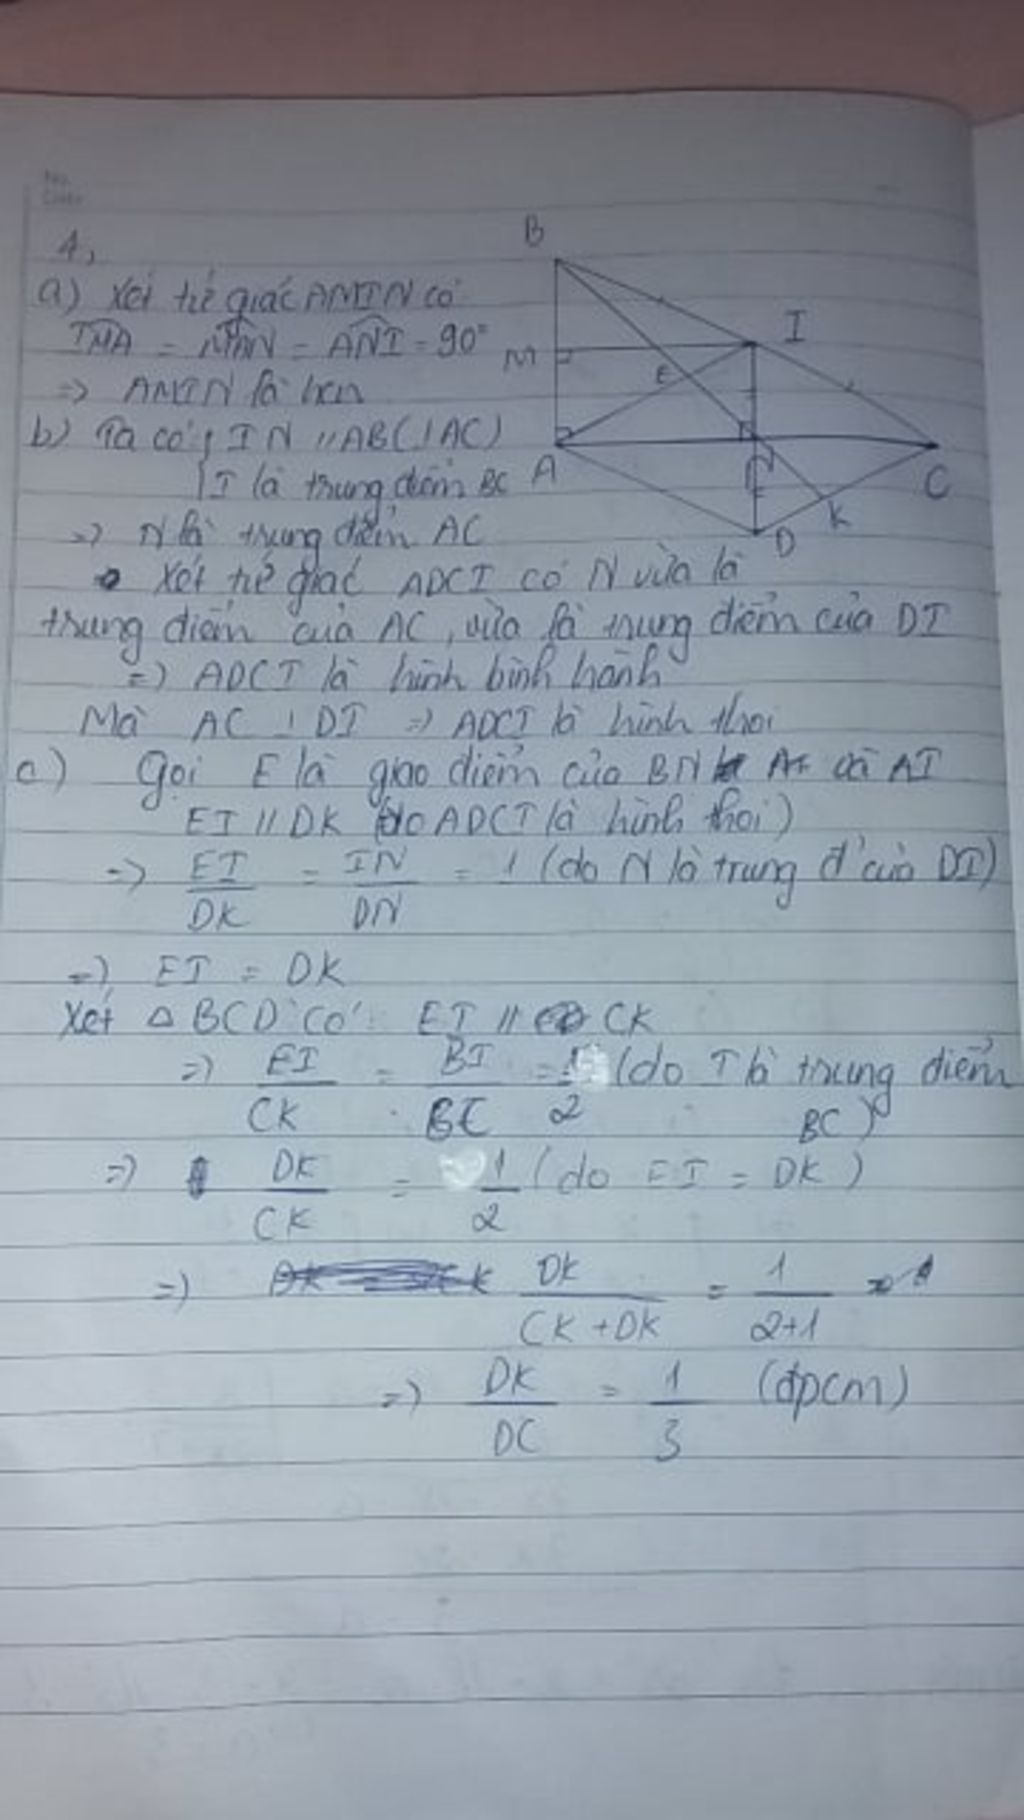 No.
Date
4,
a) Xét tứ giác AMIN có
IMA = MAN = ANI = 90°
=> AMIN là hcn
b) Ta có: IN // AB (⊥AC)
I là trung điểm BC
=> N là trung điểm AC
Xét tứ giác ADCI có N vừa là
trung điểm của AC, vừa là trung điểm của DI
=> ADCI là hình bình hành
Mà AC ⊥ DI => ADCI là hình thoi
c) Gọi E là giao điểm của BN và AI
EI // DK (do ADCI là hình thoi)
=> EI/DK = IN/DN = 1 (do N là trung đ' của DI)
=> EI = DK
Xét △ BCD có: EI // CK
=> EI/CK = BI/BC = 1/2 (do I là trung điểm
BC)
=> DK/CK = 1/2 (do EI = DK)
=> DK/CK + DK = 1/2+1
=> DK/DC = 1/3 (đpcm)
B
I
M
E
A
C
K
D